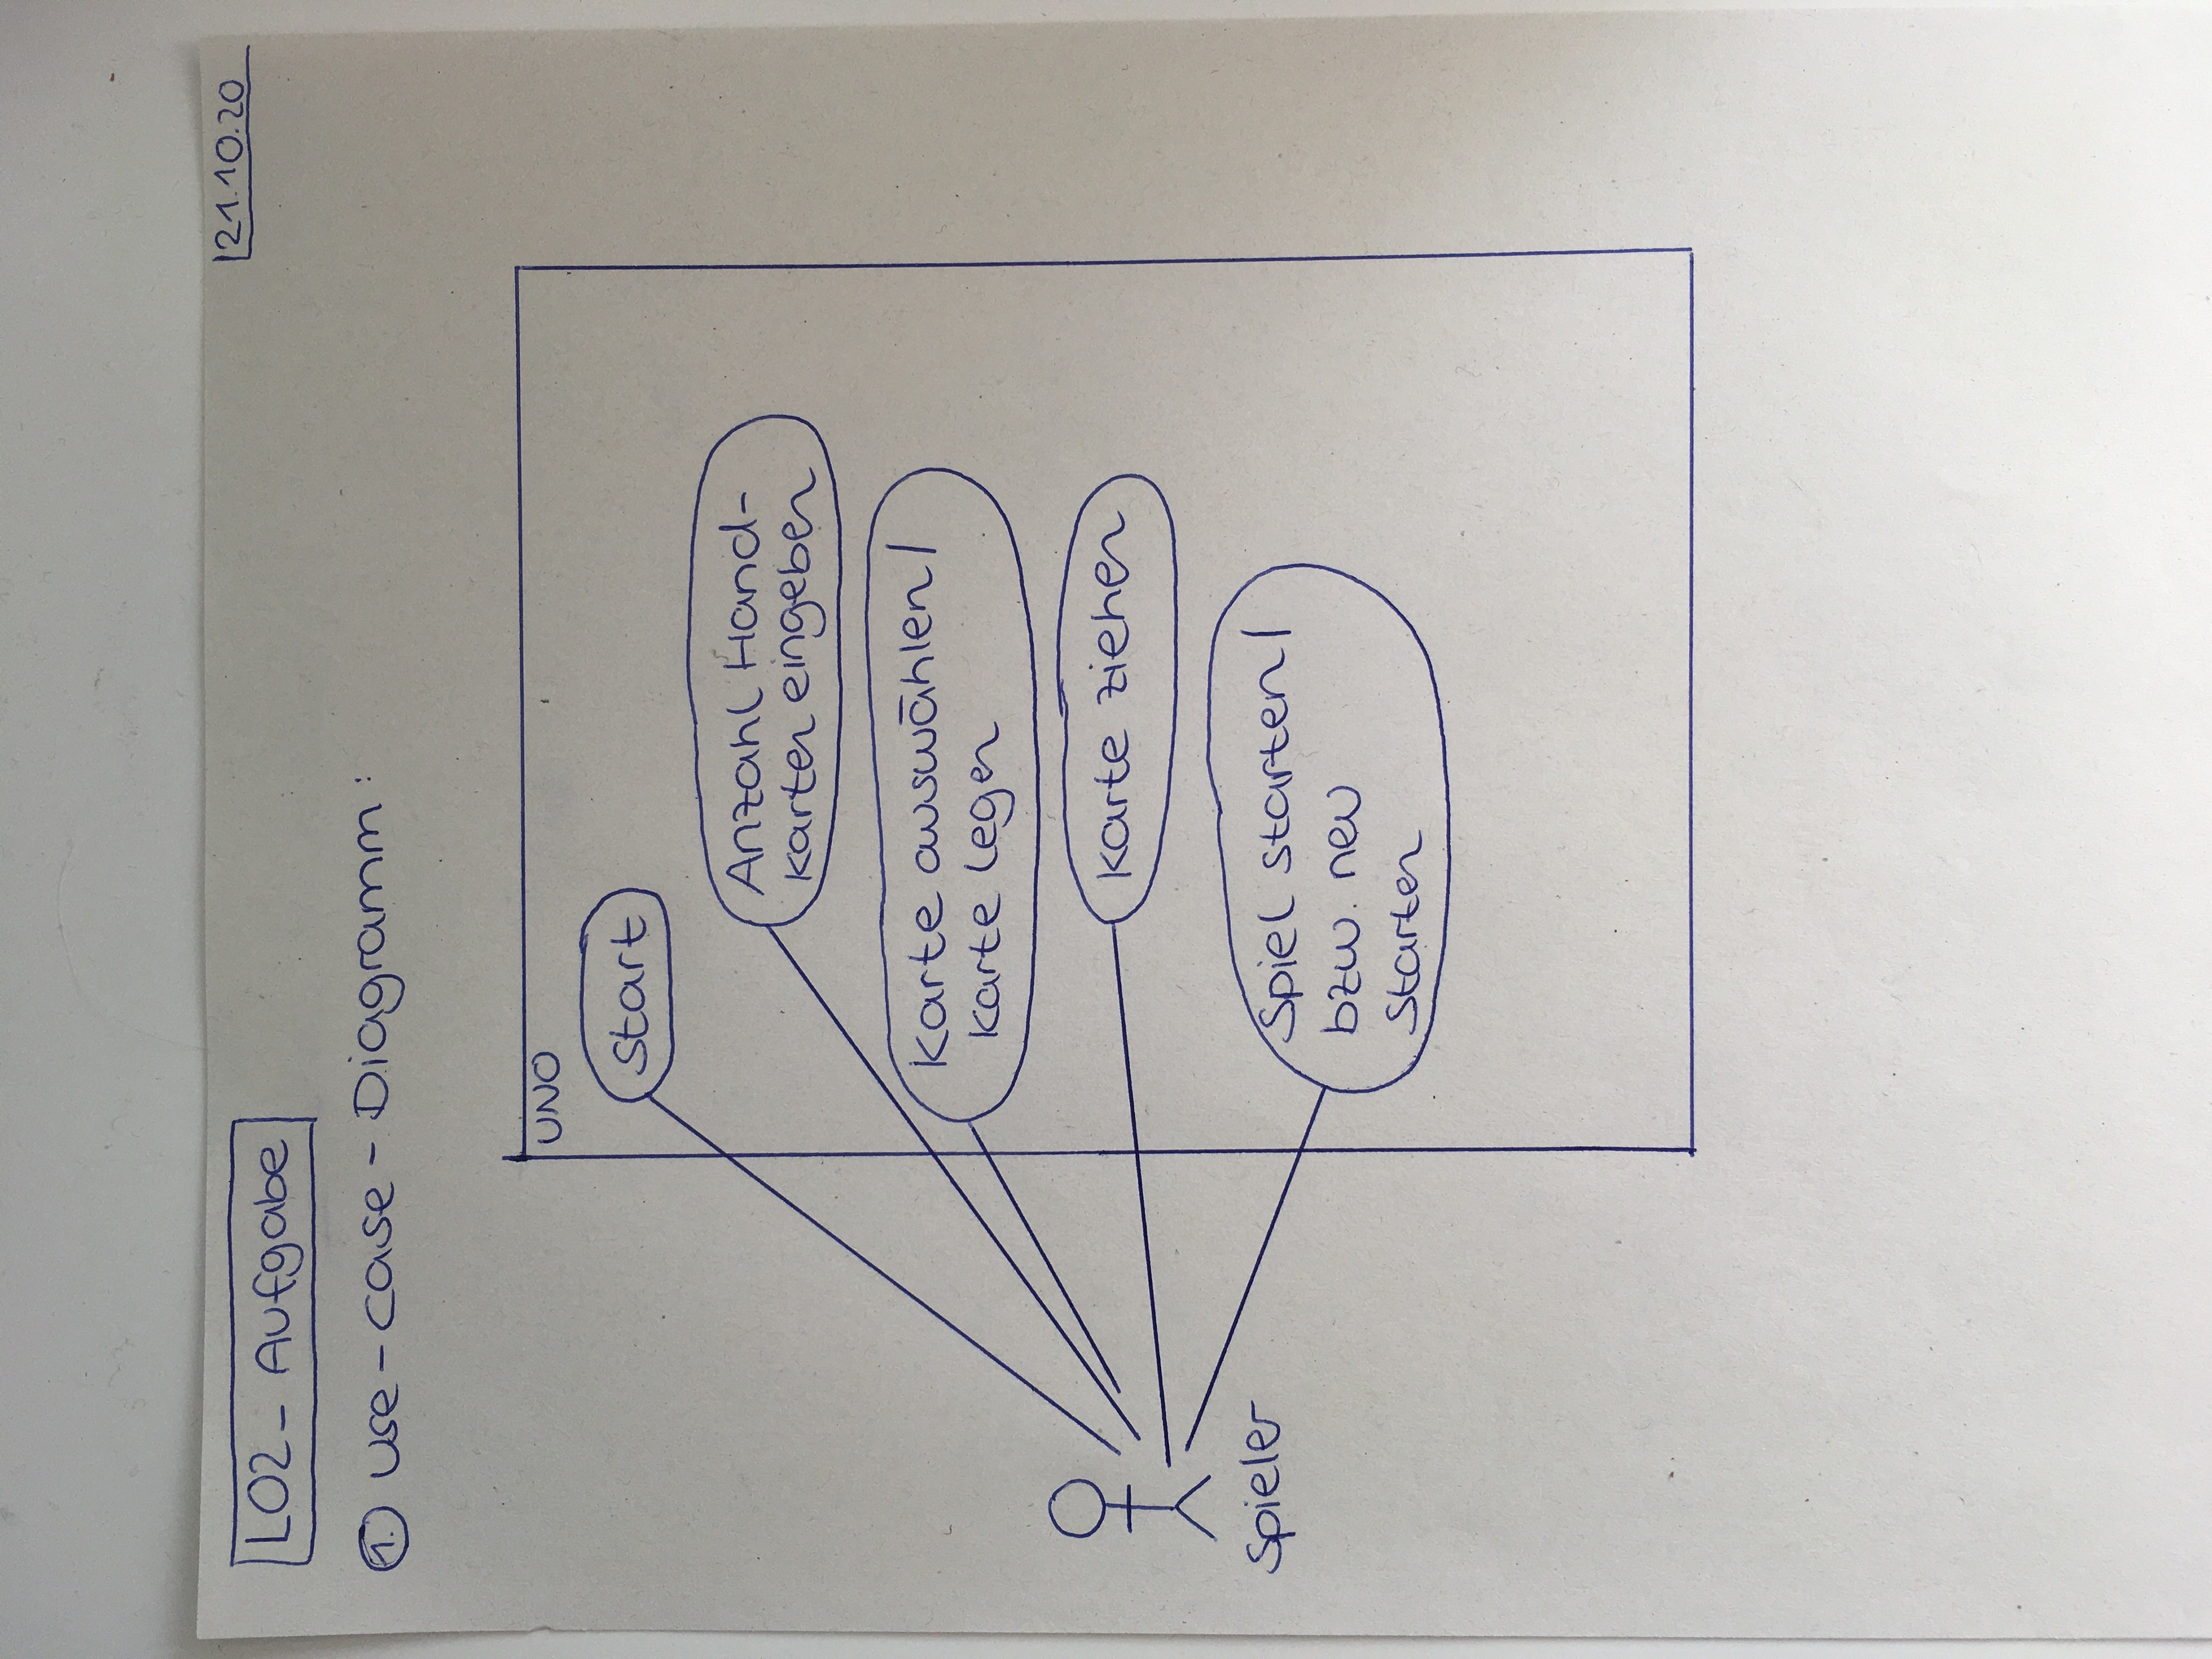 L02 - Aufgabe
21.10.20
1. Use - Case - Diagramm:
UNO
Start
Anzahl Hand-
karten eingeben
Karte auswählen/
Karte legen
Karte ziehen
Spiel starten/
bzw. neu
starten
Spieler